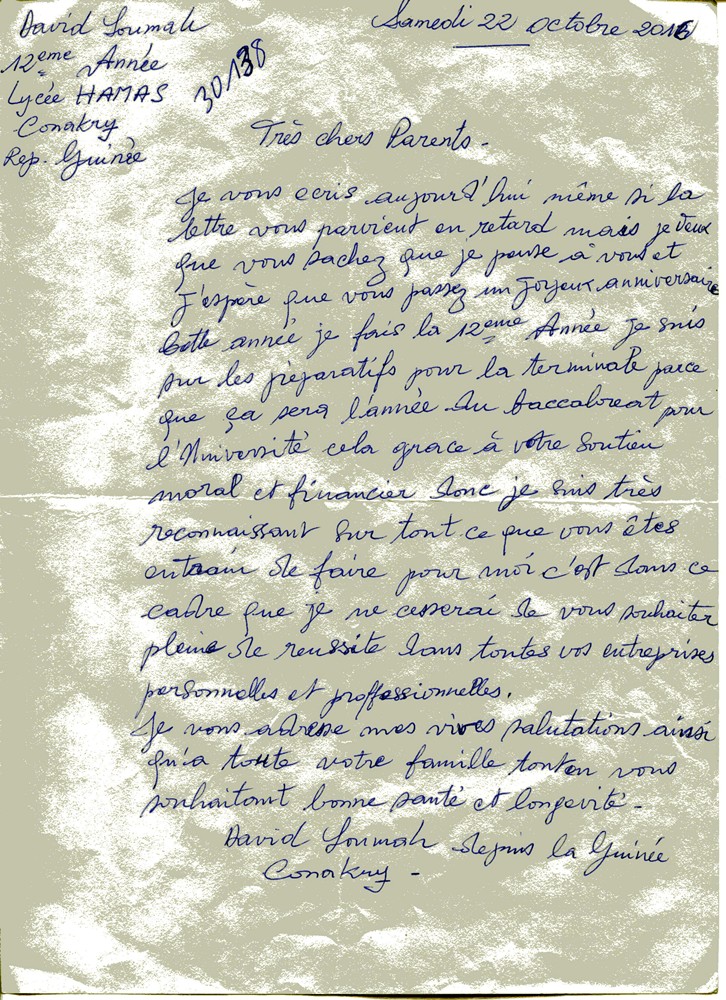 David Soumah
Samedi 22 octobre 2016
12ème Année
Lycée HAMAS
30.138
Conakry
Rep. Guinée
Très chers Parents.
Je vous ecris aujourd'hui même si la
lettre vous parvient en retard mais je veux
que vous sachez que je pense à vous et
J'espère que vous passez un Joyeux anniversaire
Cette année je fais la 12ème Année je suis
sur les préparatifs pour la terminale parce
que ça sera l'année du baccaloreat pour
l'Université cela grace à votre soutien
moral et financier donc je suis très
reconnaissant sur tout ce que vous êtes
entrain de faire pour moi c'est dans ce
cadre que je ne cesserai de vous souhaiter
pleine de reussite dans toutes vos entreprises
personnelles et proffessionnelles.
Je vous adresse mes vives salutations ainsi
qu'a toute votre famille tout en vous
souhaitant bonne santé et longevité -
David Soumah depuis la Guinée
Conakry -